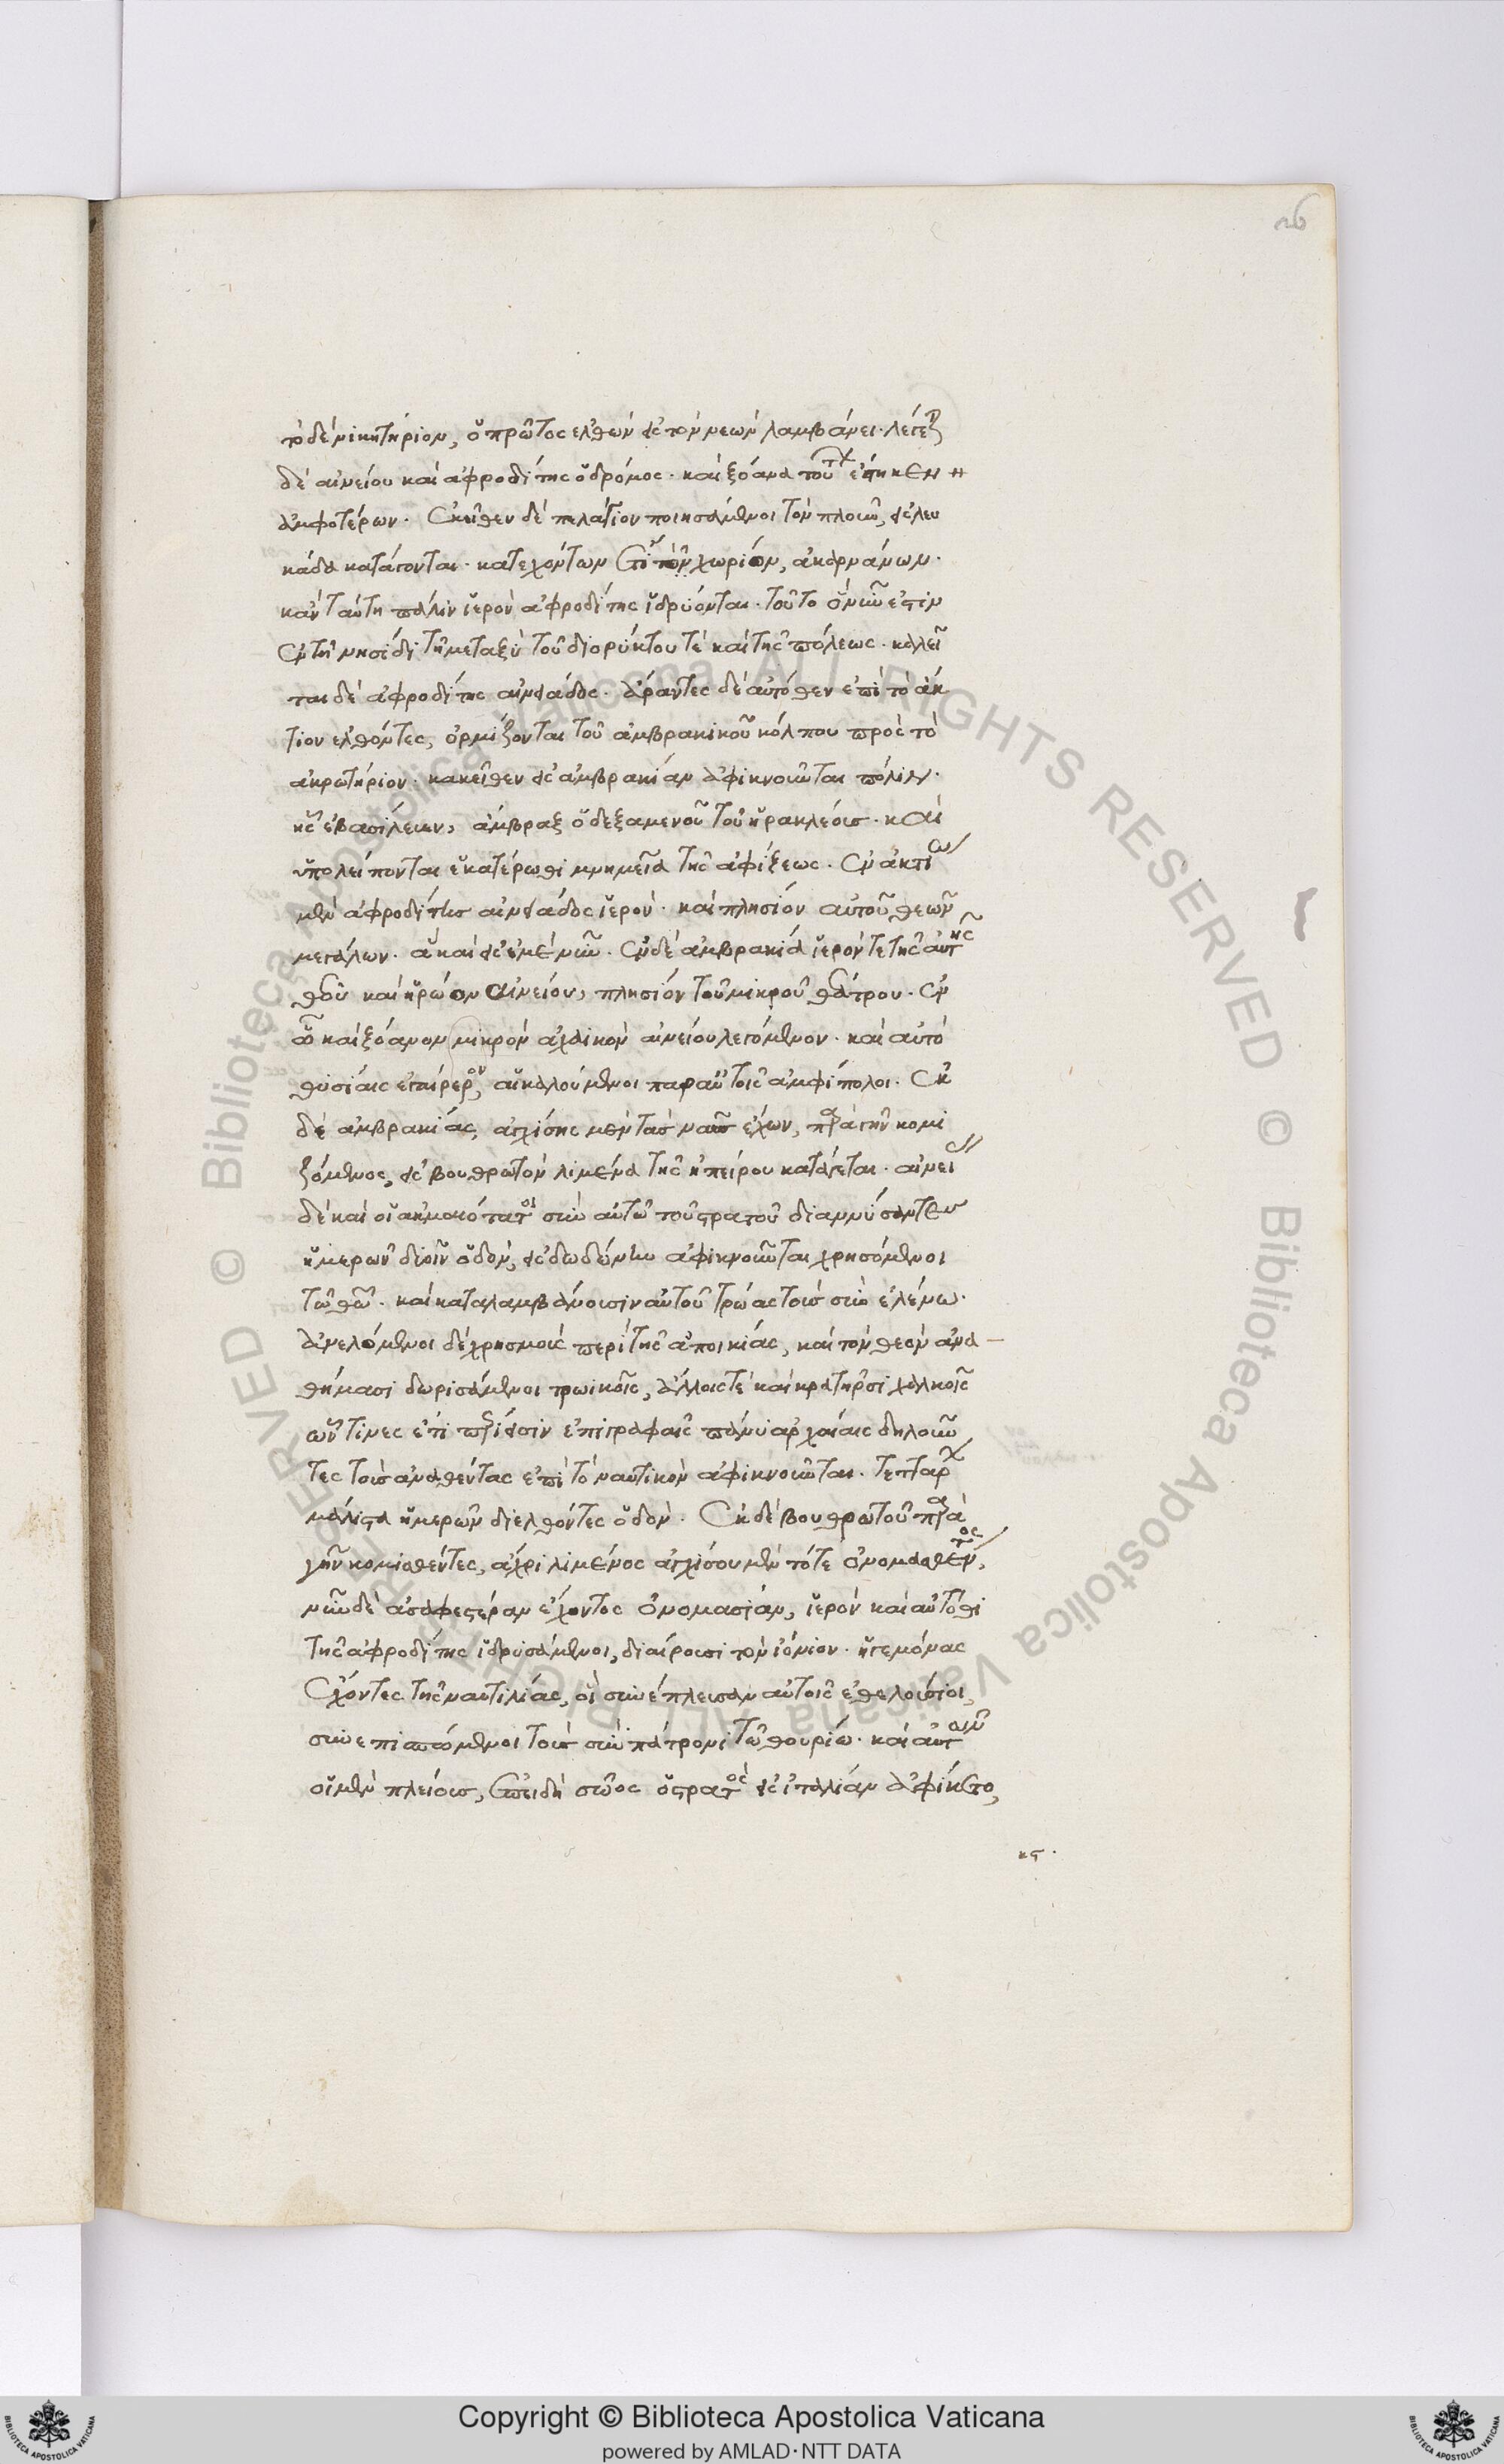 26
τὸ δὲ νικητήριον, ὁ πρῶτος ἐλθὼν εἰς τὸν νεὼν λαμβάνει· λέγεται
δὲ αἰνείου καὶ ἀφροδίτης ὁ δρόμος· καὶ ξόανα τούτων ἕστηκεν
ἀμφοτέρων. ἐκεῖθεν δὲ πελάγιον ποιησάμενοι τὸν πλοῦν, εἰς λευ
κάδα κατάγονται· κατεχόντων ἔτι τὸν χωρίον, ἀκαρνάνων.
κἀν ταύτῃ πάλιν ἱερὸν ἀφροδίτης ἱδρύονται· τοῦτο ὃ νῦν ἐστὶν
ἐν τῇ νησίδι τῇ μεταξὺ τοῦ διορύκτου τὲ καὶ τῆς πόλεως· καλεῖ
ται δὲ ἀφροδίτης αἰνειάδος. ἄραντες δὲ αὐτόθεν ἐπὶ τὸ ἄκ
τιον ἐλθόντες, ὁρμίζονται τοῦ ἀμβρακικοῦ κόλπου πρὸς τὸ
ἀκρωτήριον· κἀκεῖθεν εἰς ἀμβρακίαν ἀφικνοῦνται πόλιν.
ἧς ἐβασίλευεν, ἄμβραξ ὁ δεξαμενοῦ τοῦ ἡρακλέους· καὶ
ὑπολείπονται ἑκατέρωθι μνημεῖα τῆς ἀφίξεως. ἐν ἀκτίω
μὲν ἀφροδίτης αἰνειάδος ἱερὸν· καὶ πλησίον αὐτοῦ θεῶν
μεγάλων. ἃ καὶ εἰς ἐμὲ ἦν. ἐν δὲ ἀμβρακία ἱερόν τε τῆς αὐτῆς
θεοῦ καὶ ἡρῶον αἰνείου, πλησίον τοῦ μικροῦ θεάτρου. ἐν
ᾧ καὶ ξόανον μικρὸν ἀρχαικὸν αἰνείου λεγόμενον· καὶ αὐτὸ
θυσίαις ἐγαίρερον, αἱ καλούμενοι παρ αὐτοῖς ἀμφίπολοι. ἐκ
δὲ ἀμβρακίας, ἀγχίσης μὲν τὰς ναῦς ἔχων, παρὰ γῆν κομι
ζόμενος, εἰς βουθρωτὸν λιμένα τῆς ἠπείρου κατάγεται· αἰνείας
δὲ καὶ οἱ ἀκμαιότατοι σὺν αὐτῷ τοῦ στρατοῦ διανύσαντες
ἡμερῶν δυοῖν ὁδὸν, εἰς δωδώνην ἀφικνοῦνται χρησόμενοι
τῷ θεῷ· καὶ καταλαμβάνουσιν αὐτοῦ τρῶας τοὺς σὺν ἑλένω.
ἀνελόμενοι δὲ χρησμοὺς περὶ τῆς ἀποικίας, καὶ τὸν θεὸν ἀνα
θήμασι δωρισάμενοι τρωικοῖς, ἄλλοις τὲ καὶ κρατῆρσι χαλκοῖς
ὧν τινες ἔτι περίεισιν ἐπιγραφαῖς πάνυ ἀρχαίαις δηλοῦν
τες τοὺς ἀναθέντας ἐπὶ τὸ ναυτικὸν ἀφικνοῦνται. τεττάρων
μάλιστα ἡμερῶν διελθόντες ὁδὸν. ἐκ δὲ βουθρωτοῦ παρὰ
γῆν κομισθέντες, ἄχρι λιμένος ἀγχίσου μὲν τότε ὀνομασθέντος,
νῦν δὲ ἀσαφεστέραν ἔχοντος ὀνομασίαν, ἱερὸν καὶ αὐτόθι
τῆς ἀφροδίτης ἱδρυσάμενοι, διαίρουσι τὸν ἰόνιον· ἡγεμόνας
ἔχοντες τῆς ναυτιλίας, οἳ συνέπλευσαν αὐτοῖς ἐθελούσιοι
συνεπισπόμενοι τοὺς σὺν πάτρωνι τῷ θουρίω· καὶ αὐτῶν
οἱ μὲν πλείους, ἐπειδὴ σῶος ὁ στρατὸς εἰς ἰταλίαν ἀφίκετο,
κϛ.
Copyright © Biblioteca Apostolica Vaticana
powered by AMLAD·NTT DATA